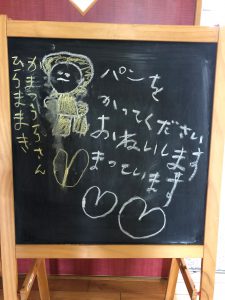 パンを
かってください
おねいします
まっています
かまつうちさん
ひらままき